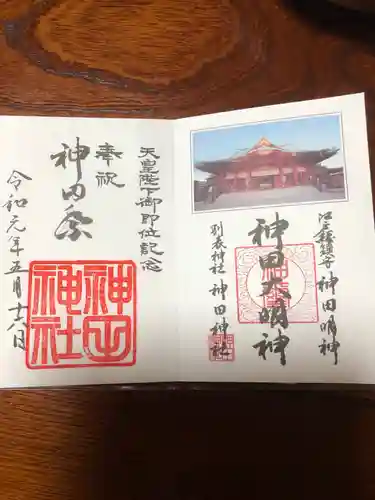 江戸総鎮守 神田明神
神田大明神
別表神社 神田神社
天皇陛下御即位記念
奉祝
神田祭
令和元年五月十八日
神田
神社